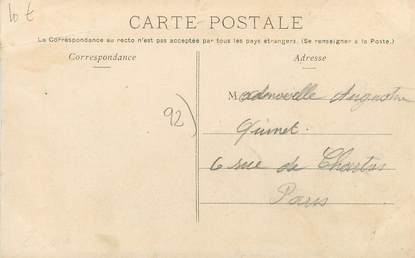 10 €
CARTE POSTALE
La Correspondance au recto n'est pas acceptée par tous les pays étrangers. (Se renseigner à la Poste.)
Correspondance
Adresse
Mademoiselle
92)
6 rue de Chartres
Paris